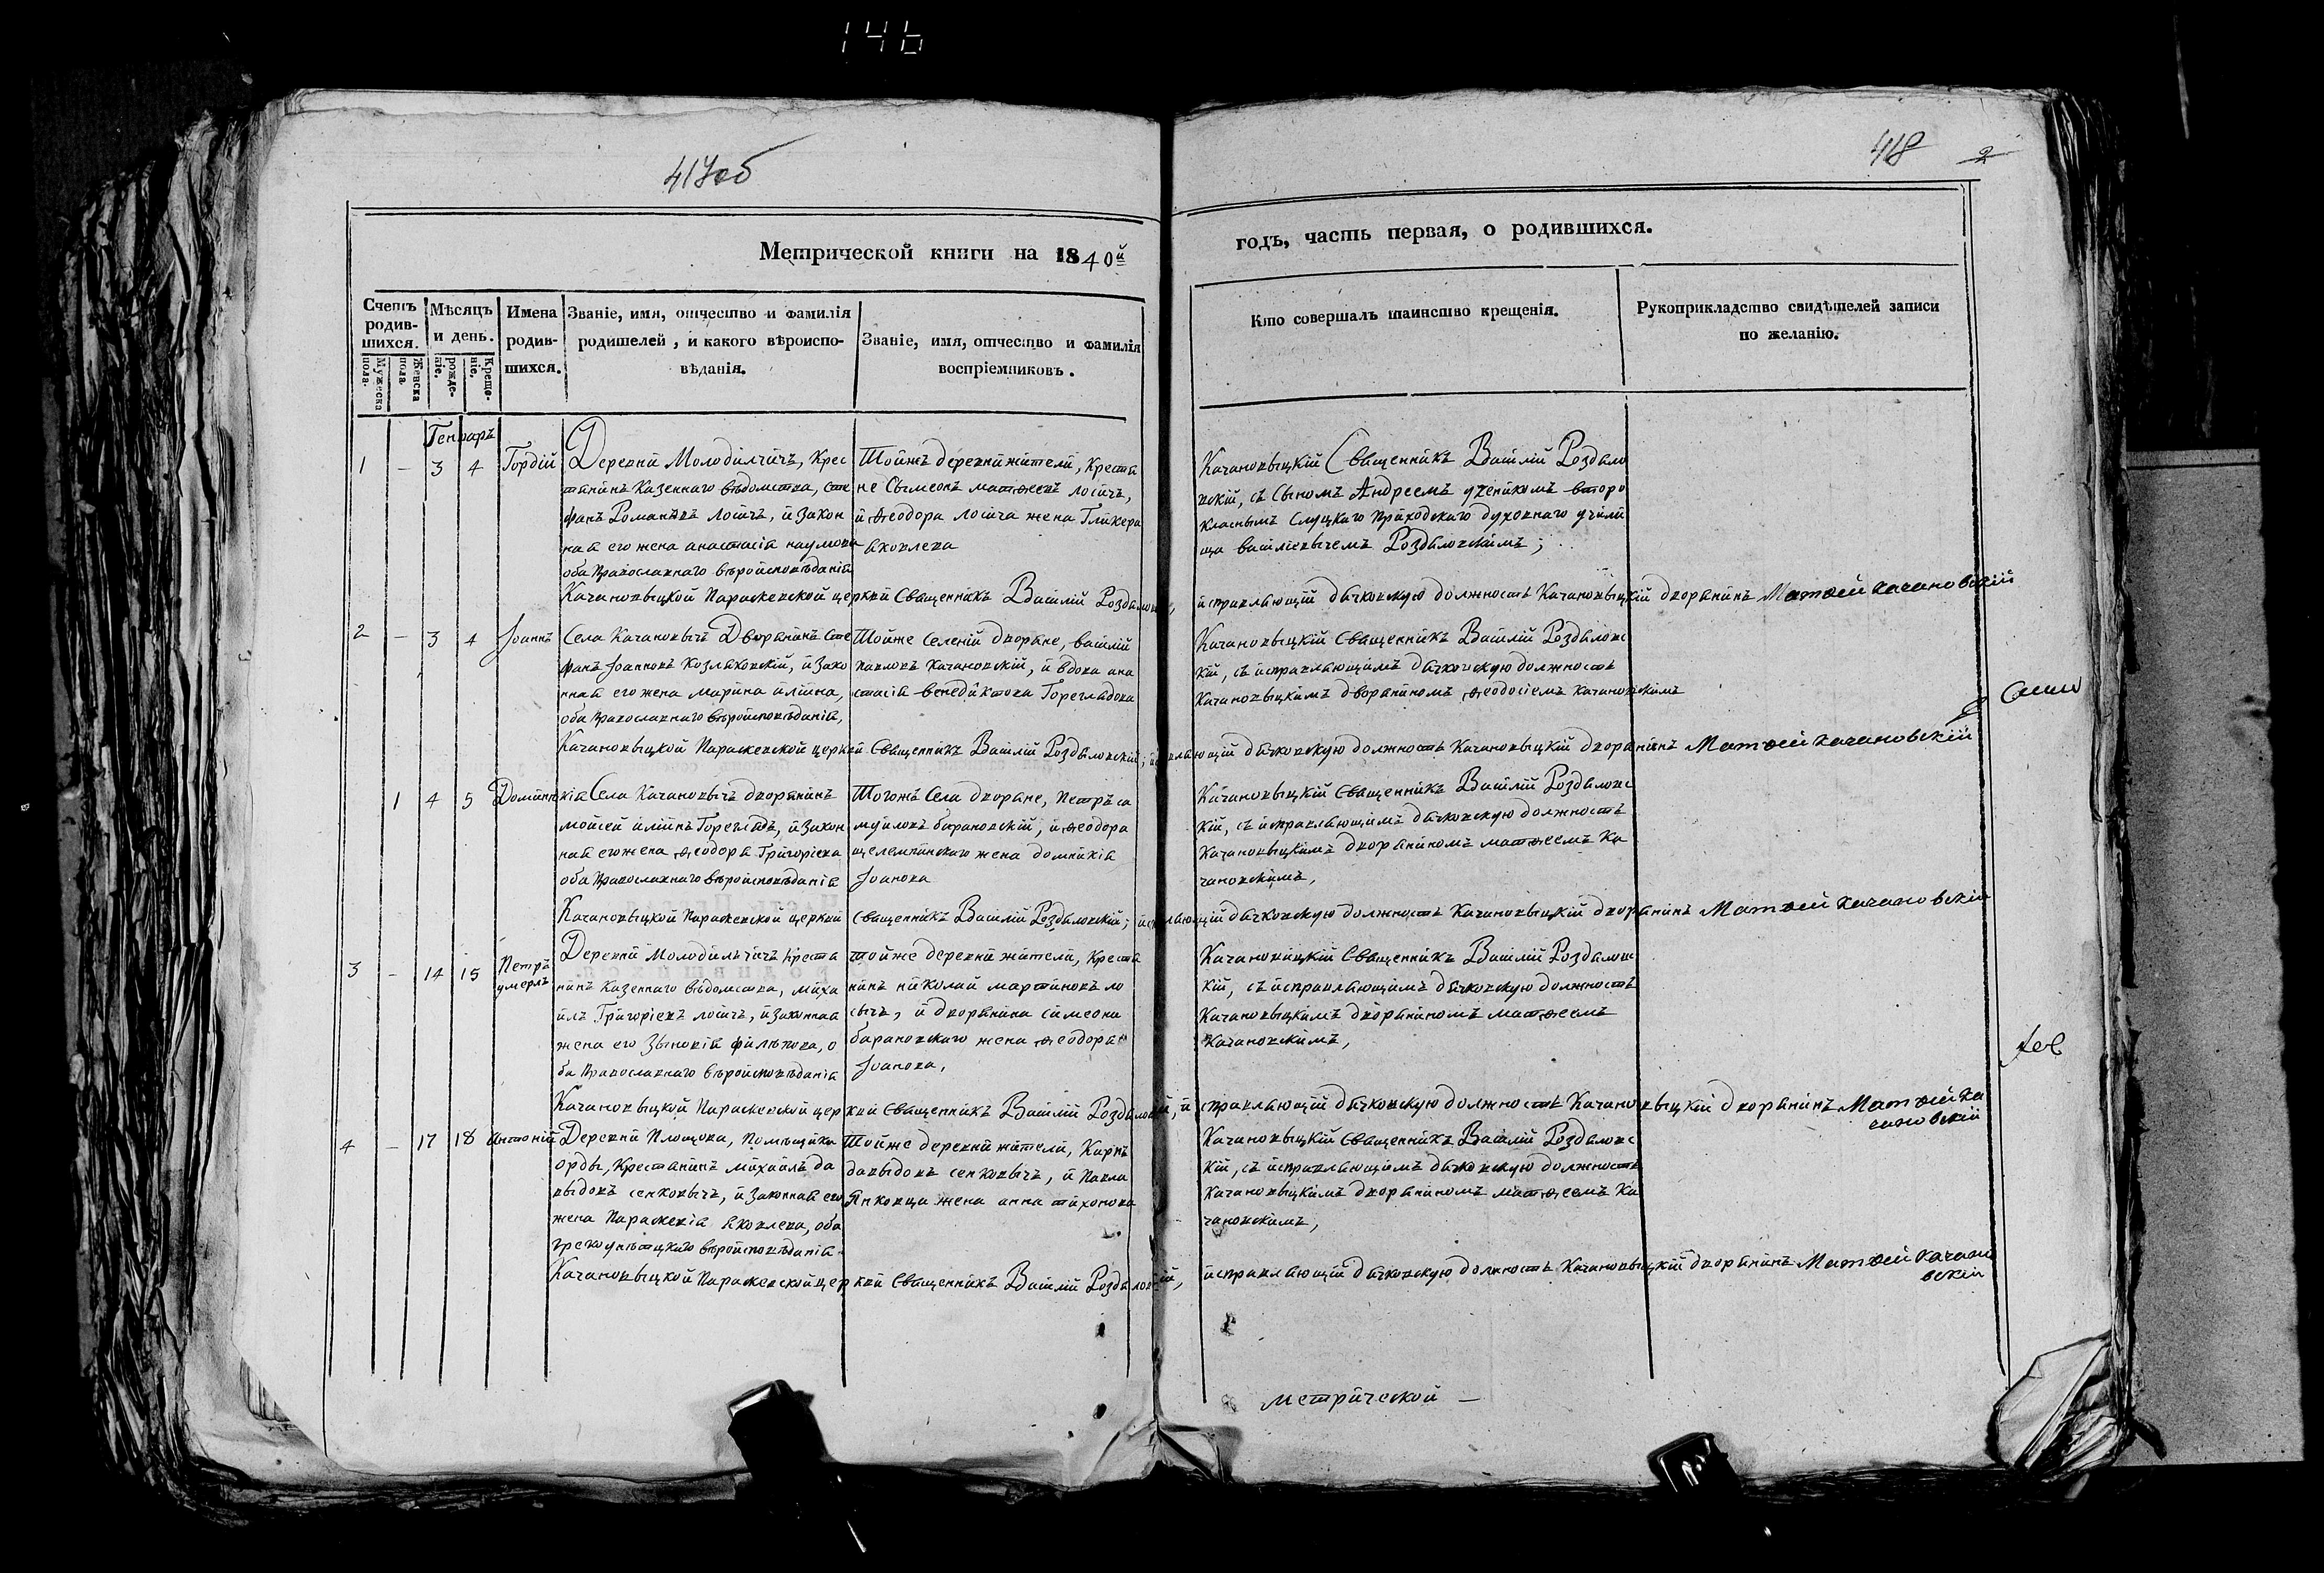 146
417об
418 2
Метрической книги на 1840й
годъ, часть первая, о родившихся.
Счетъ родив-шихся.
Мужеска пола.
Женска пола.
Мѣсяцъ и день.
рожде-ніе.
Креще-ніе.
Имена родив-шихся.
Званіе, имя, отчество и фамилія
родителей, и какого вѣроиспо-
вѣданія.
Званіе, имя, отчество и фамилія
воспріемниковъ.
Кто совершалъ таинство крещенія.
Рукоприкладство свидѣтелей записи
по желанію.
Генваръ
1 – 3 4 Гордій
Деревни Молодилчичъ, Крес
тянинъ Казеннаго вѣдомства, Сте
фанъ Романовъ Лосичъ, и закон
ная его жена анастасія наумова
оба Православнаго вѣроисповѣданія
Тойжъ деревни жители, Крестя
не Сымеонъ матѳеевъ лосичъ,
и Ѳеодора лосича жена Гликера
яковлева
Качановыцкій Священникъ Василій Роздяло
вскій, съ Сыномъ Андреемъ ученикомъ второ
класнымъ Слуцкаго Приходскаго духовнаго учили
ща василіевычемъ Роздяловскимъ;
Качановыцкой Параскевской церкви Священникъ Василій Роздяловскій, исправляющій дячковскую должность Качановыцкій дворянинъ Матѳей качановскій
2 – 3 4 Іоаннъ
Села Качановычъ Дворянинъ Сте
фанъ Іоанновъ Козляковскій, и зако
нная его жена марина иліина,
оба православнаго вѣроисповѣданія,
Тойже селеній дворяне, василій
павловъ Качановскій, и вдова ана
стасія венедиктова Гореглядова
Качановыцкій Священникъ Василій Роздяловс
кій, съ исправляющимъ дячковскую должность
Качановыцкимъ дворяниномъ Ѳеодосіемъ Качановскимъ
Качановыцкой Параскевской церкви Священникъ Василій Роздяловскій; исправляющій дячковскую должность Качановыцкій дворянинъ Матѳей качановскій
1 4 5 Доминикія
Села Качановычъ дворянинъ
мойсей иліинъ Гореглядъ, и закон
ная его жена Ѳеодора Григоріева
оба Православнаго вѣроисповѣданія
Тогожъ Села дворяне, Петръ са
муиловъ барановскій, и Ѳеодора
жена домникія
Іоанова
Качановыцкій Священникъ Василій Роздяловс
кій, съ исправляющимъ дячковскую должность
Качановыцкимъ дворяниномъ матѳеемъ Ка
чановскимъ,
Качановыцкой Параскевской церкви священникъ Василій Роздяловскій; исправляющій дячковскую должность Качановыцкій дворянинъ Матѳей качановскій
3 – 14 15 Петръ
умерлъ
Деревни Молодильчичъ креста
нинъ Казеннаго вѣдомства, миха
илъ Григоріевъ лосичъ, и законная
жена его Зыновія филипова, о
ба Православнаго вѣроисповѣданія
тойже деревни жители, креста
нинъ николай мартиновъ ло
сычъ, и дворянина симеона
барановскаго жена Ѳеодора
Іоанова,
Качановицкій Священникъ Василій Роздяловс
кій, съ исправляющимъ дячковскую должность
Качановыцкимъ дворяниномъ матѳеемъ
Качановскимъ,
Качановыцкой Параскевской церкви Священникъ Василій Роздяловскій, исправляющій дячковскую должность Качановыцкій дворянинъ Матѳей ка
чановскій
4 – 17 18 Антоній
Деревни Площова, Помѣщика
орды, Крестянинъ михаилъ да
выдовъ сенковычъ, и законная его
жена Параскевія яковлева, оба
грекоунѣтцкаго вѣроисповѣданія
Тойже деревни жители, Карпъ
давыдовъ сенковычъ, и Павла
Янковца жена анна тихонова
Качановыцкій Священникъ Василій Роздяловс
кій, съ исправляющимъ дячковскую должность
Качановыцкимъ дворяниномъ матѳеемъ Ка
чановскимъ,
Качановыцкой Параскевской церкви Священникъ Василій Роздяловскій, исправляющій дячковскую должность Качановыцкій дворянинъ Матѳей качано
вскій
метрической –